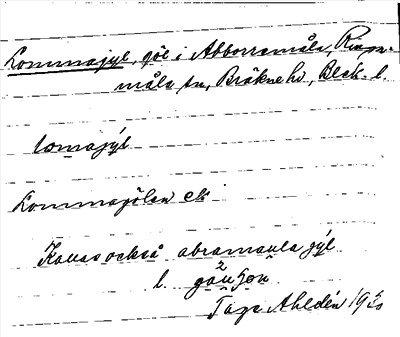 Lommagyl, göl i Abborramåla, Ringa-
måla sn, Bräkne hd, Blek. l.
lomagýl
Lommagölen ek
Kallas också abramaula gýl
l.
Tage Ahldén 19